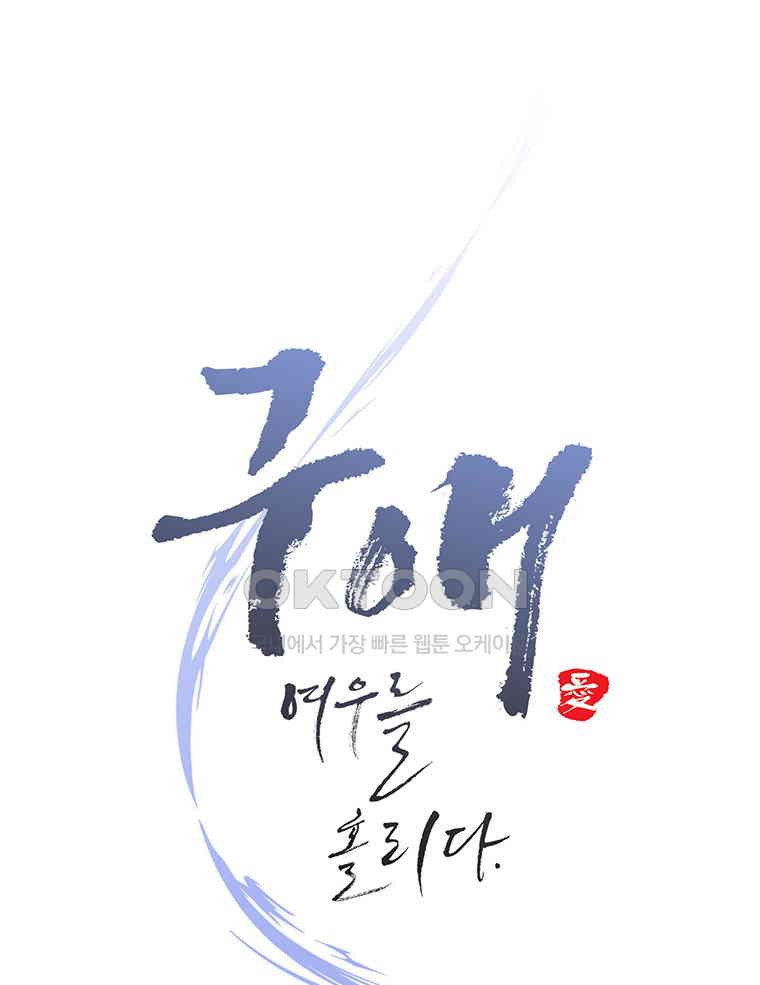 구애
OKTOON
국내에서 가장 빠른 웹툰 오케이
愛
여우를
홀리다.